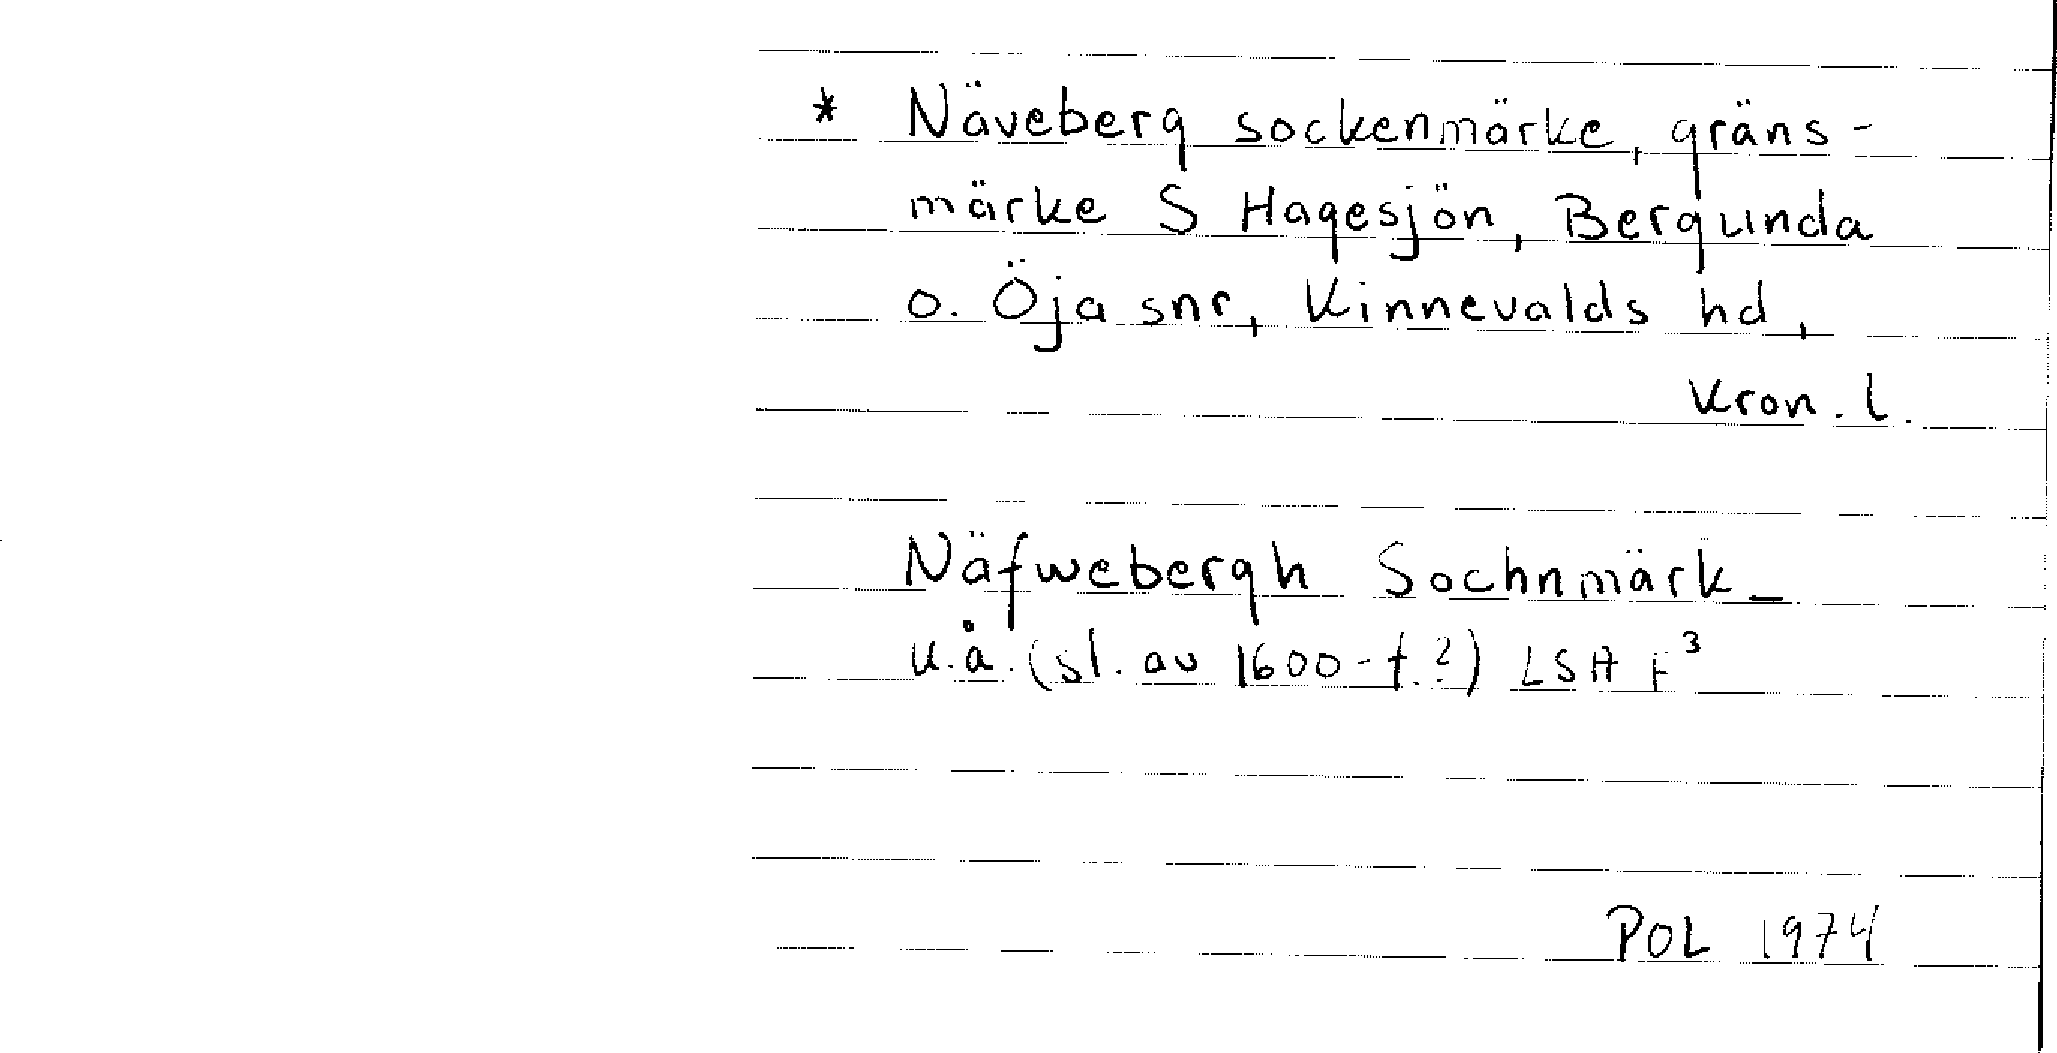 * Näveberg sockenmärke, gräns-
märke S Hagesjön, Bergunda
o. Öja snr, Kinnevalds hd,
Kron. l.
Näfwebergh Sochnmärk_
u.å. (sl. av 1600-t.?) LSA F³
POL 1974